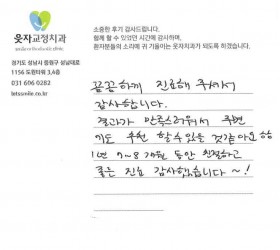 웃자교정치과
소중한 후기 감사드립니다.
함께 할 수 있었던 시간에 감사하며,
환자분들의 소리에 귀 기울이는 웃자치과가 되도록 하겠습니다.
경기도 성남시 중원구 성남대로
1156 도원타워 3,4층
031 696 0282
letssmile.co.kr
꼼꼼하게 진료해 주셔서
감사합니다.
결과가 만족스러워서 주변
에도 추천 할 수 있을 것 같아요
1년 7~8개월 동안 친절하고
좋은 진료 감사했습니다~!